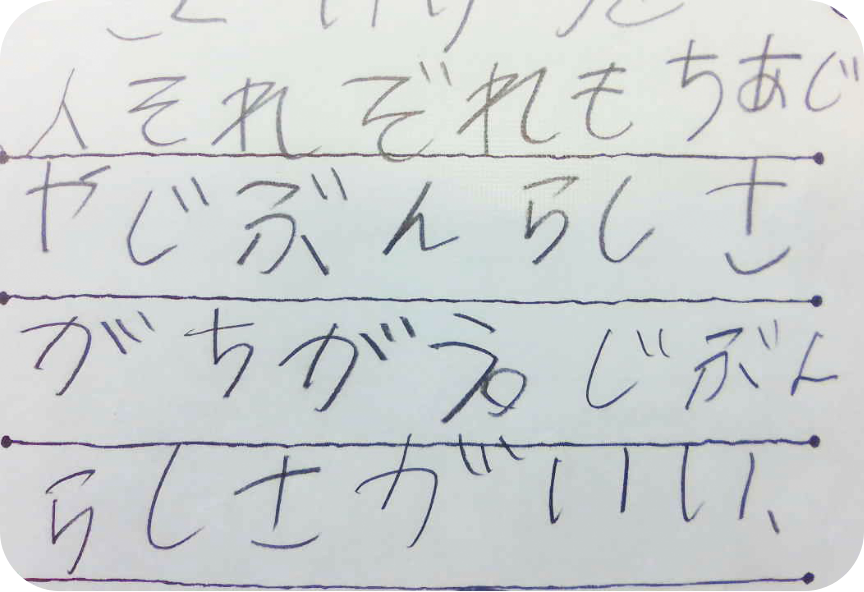 人それぞれもちあじ
やじぶんらしさ
がちがう。じぶん
らしさがいい、